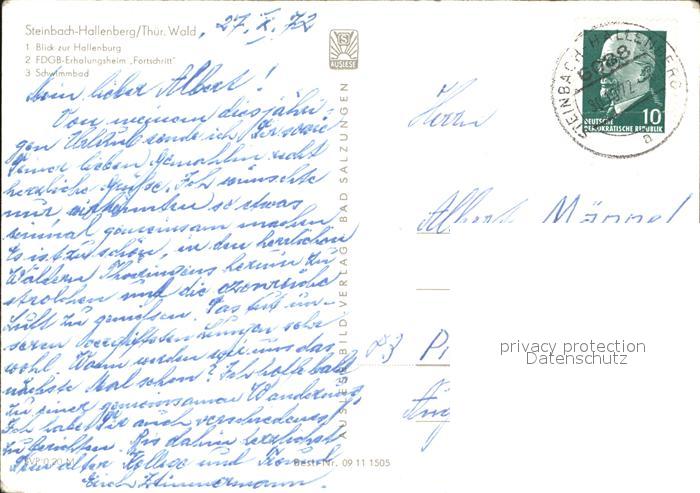 Steinbach-Hallenberg/Thür. Wald
1 Blick zur Hallenburg
2 FDGB-Erholungsheim „Fortschritt"
3 Schwimmbad
27. X. 72
AUSLESE
Mein lieber Albert!
Von meinem diesjähri-
gen Urlaub sende ich Dir sowie
Deiner lieben Gemahlin recht
herzliche Grüße. Ich wünschte
nur, wir könnten so etwas
einmal gemeinsam machen.
Es ist zu schön, in den herrlichen
Wäldern Thüringens herum zu
strolchen und die ozonreiche
Luft zu genießen. Das tut un-
seren vergifteten Lungen sehr
wohl. Wann werden wir uns das
nächste Mal schon? Ich hoffe bald
zu einer gemeinsamen Wanderung.
Ich habe Dir auch verschiedenes
zu berichten. Bis dahin herzlichst
Dein alter Kollege und Freund
Erich Zimmermann.
EVP 0,20 M
Best.-Nr. 09 11 1505
AUSLESE-BILD-VERLAG BAD SALZUNGEN
STEINBACH-HALLENBERG
6088
a
10
DEUTSCHE
DEMOKRATISCHE REPUBLIK
Herrn
Albert Männel
privacy protection
Datenschutz